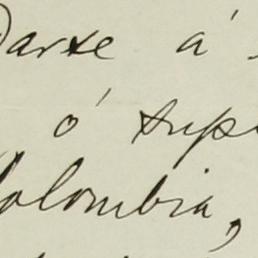 Darse á
ó supi
Colombia,